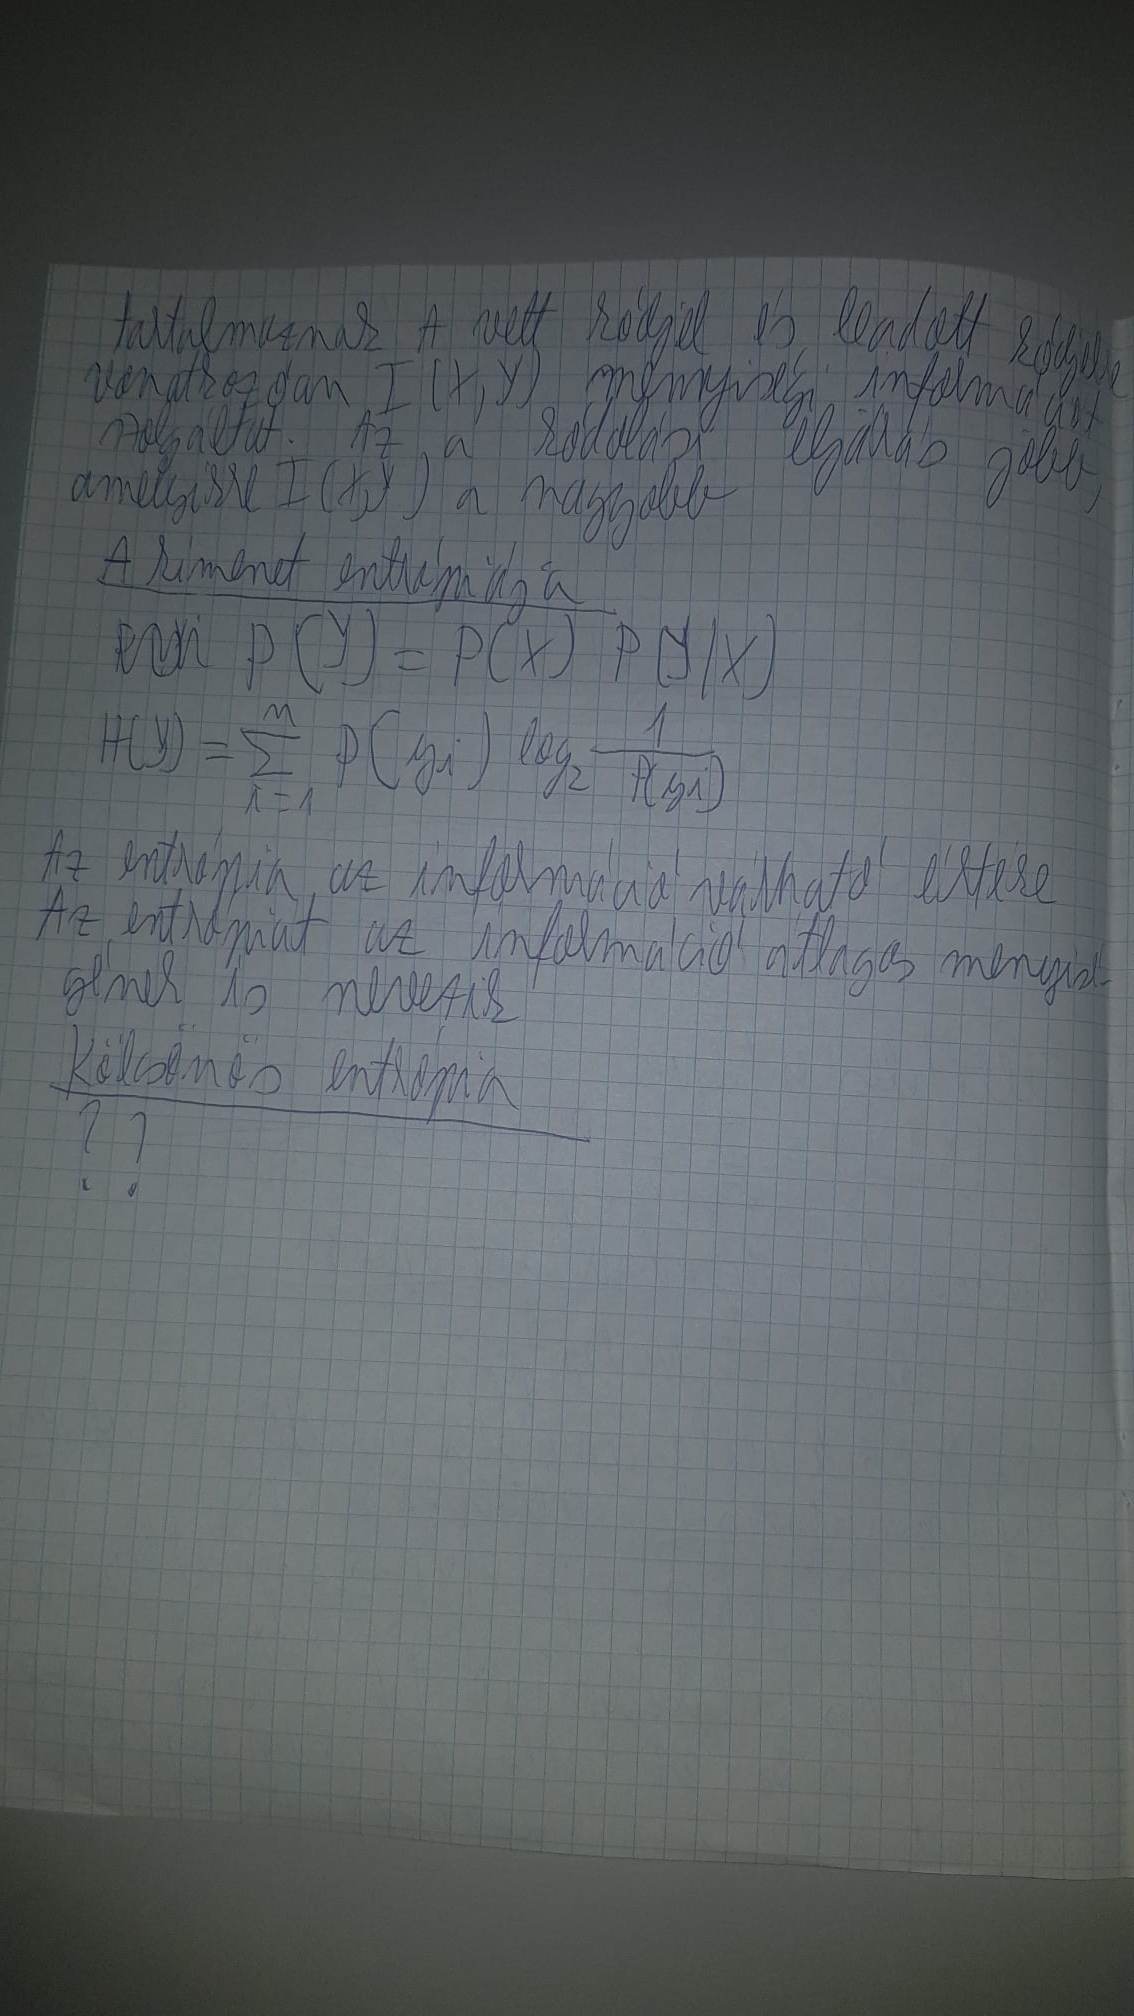 tartalmaznak A vett kódjel és leadott kódjelre
vonatkozóan I(X,Y) mennyiségű információt
szolgáltat. Az a kódolási eljárás jobb,
amelyikre I(X,Y) a nagyobb
A kimenet entrópiája
P(Y) = P(X) P(Y/X)
H(Y) = n∑i=1 P(yi) log2 1/P(yi)
Az entrópia az információ várható értéke
Az entrópiát az információ átlagos menyisé-
gének is nevezik
Kölcsönös entrópia
? ?